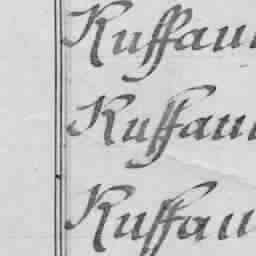 Ruffau
Ruffau
Ruffau